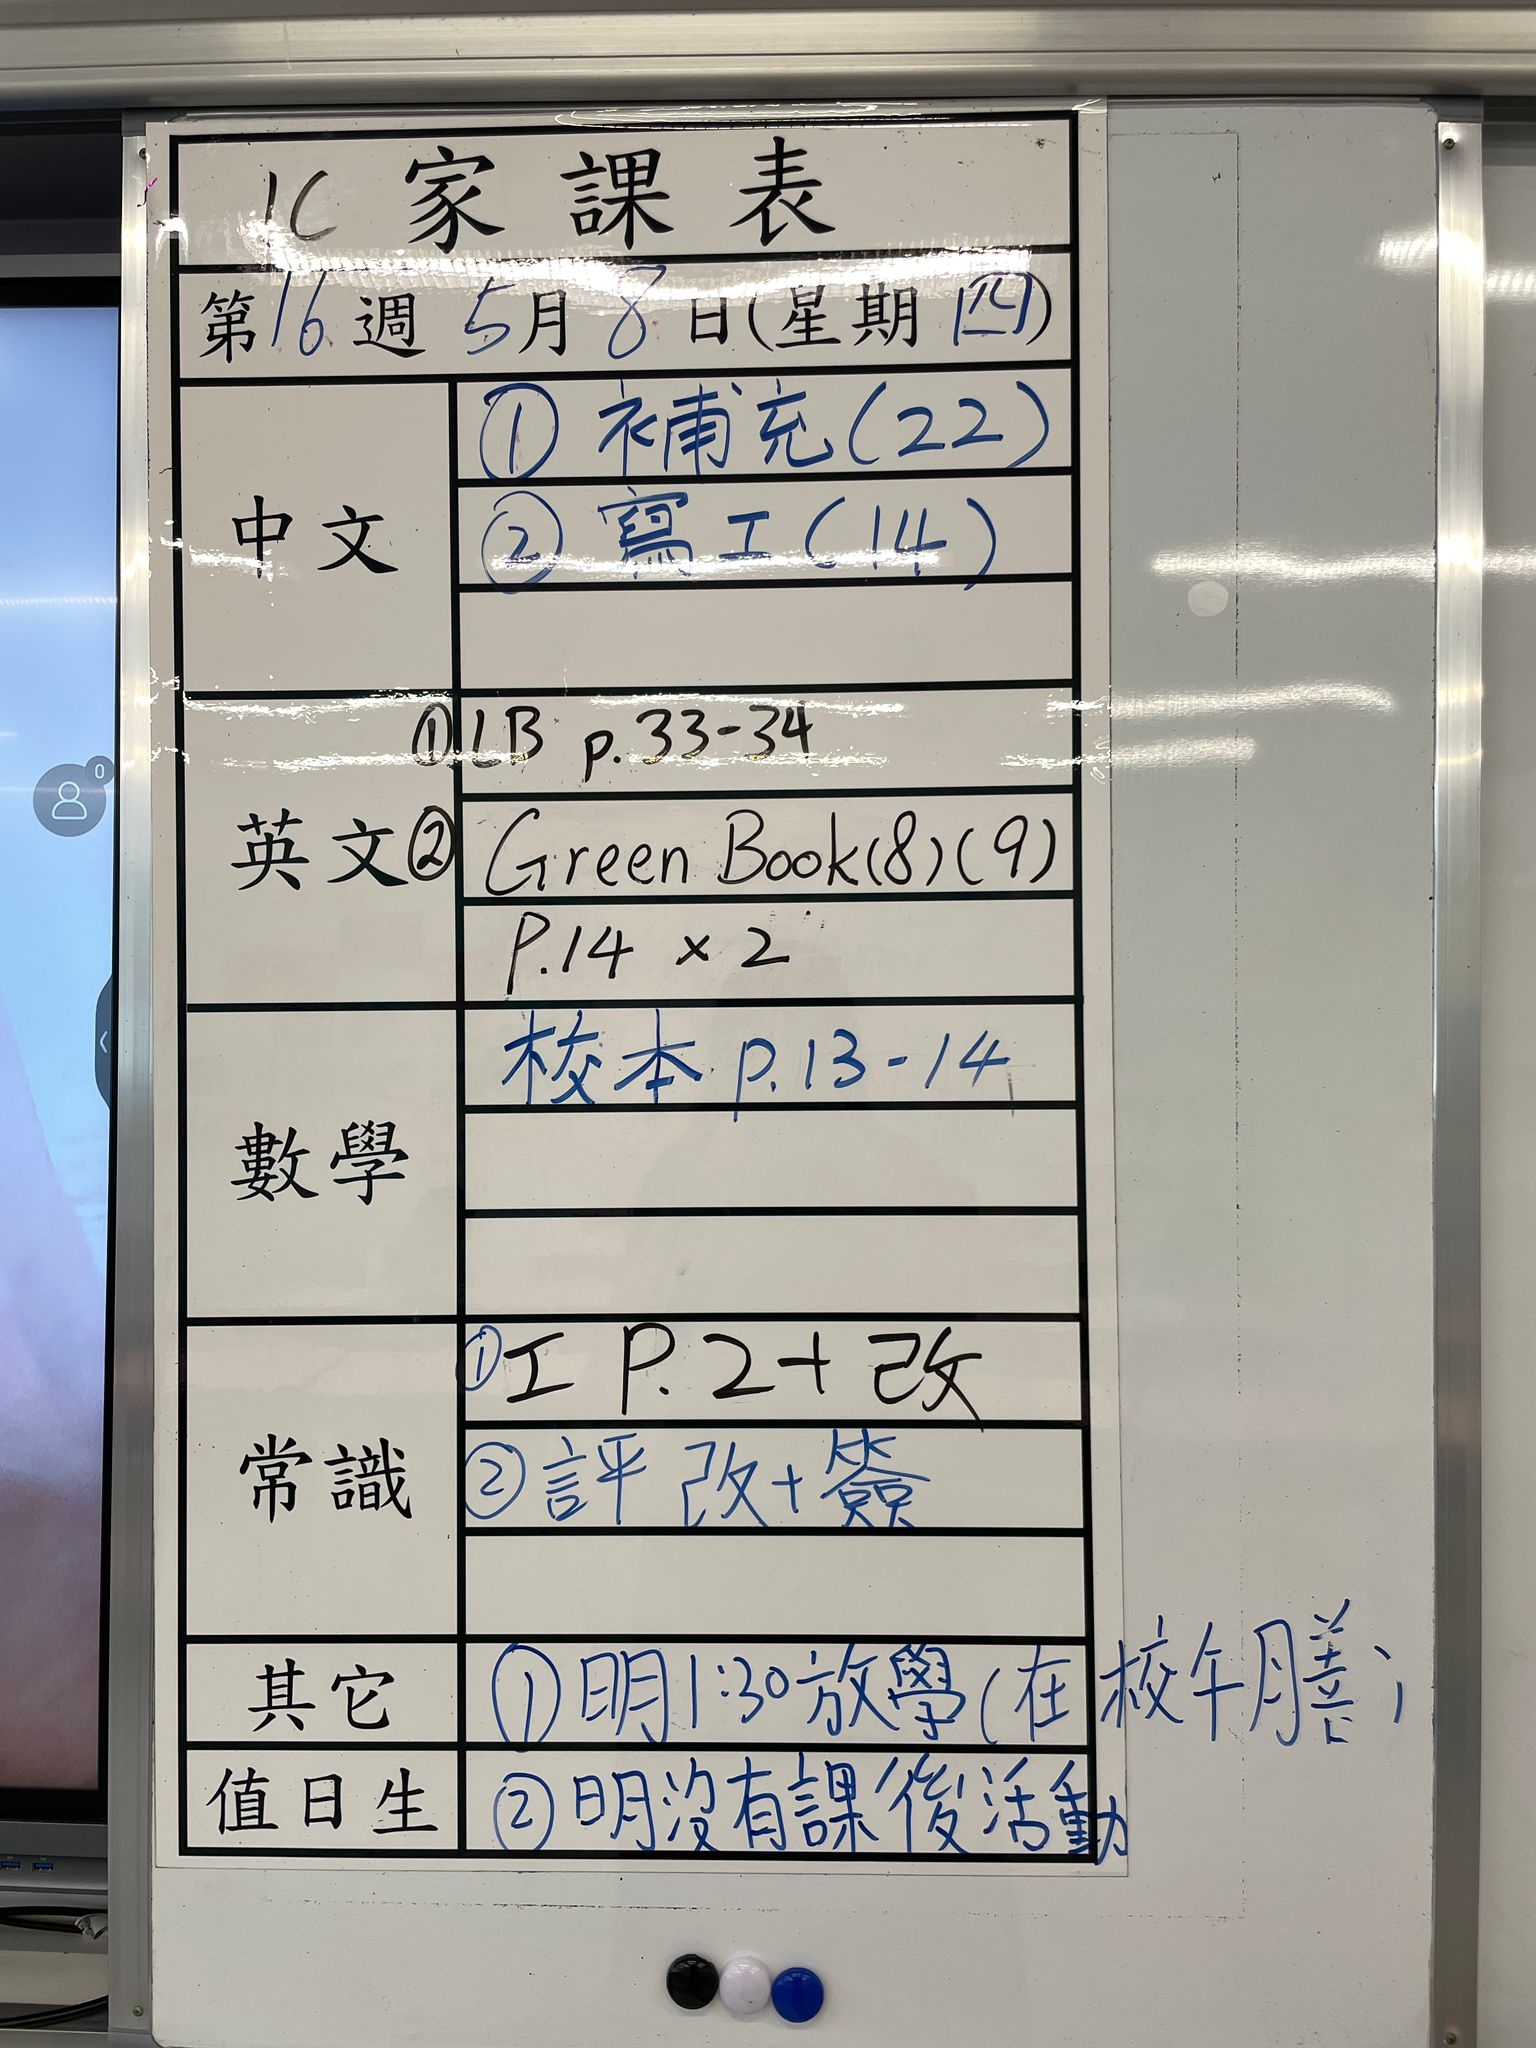 1C 家課表
第16週 5月8日(星期四)
中文
① 補充(22)
② 寫工(14)
英文
① LB p.33-34
② Green Book(8)(9)
P.14 × 2
數學
校本 p.13-14
常識
① 工 P.2+改
② 評改+簽
其它
① 明1:30放學(在校午膳)
值日生
② 明沒有課後活動
0